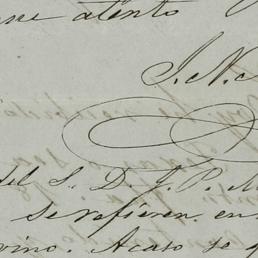 me atento
J. N.
del S. D. J. P. M
se refieren en
vino. Acaso se